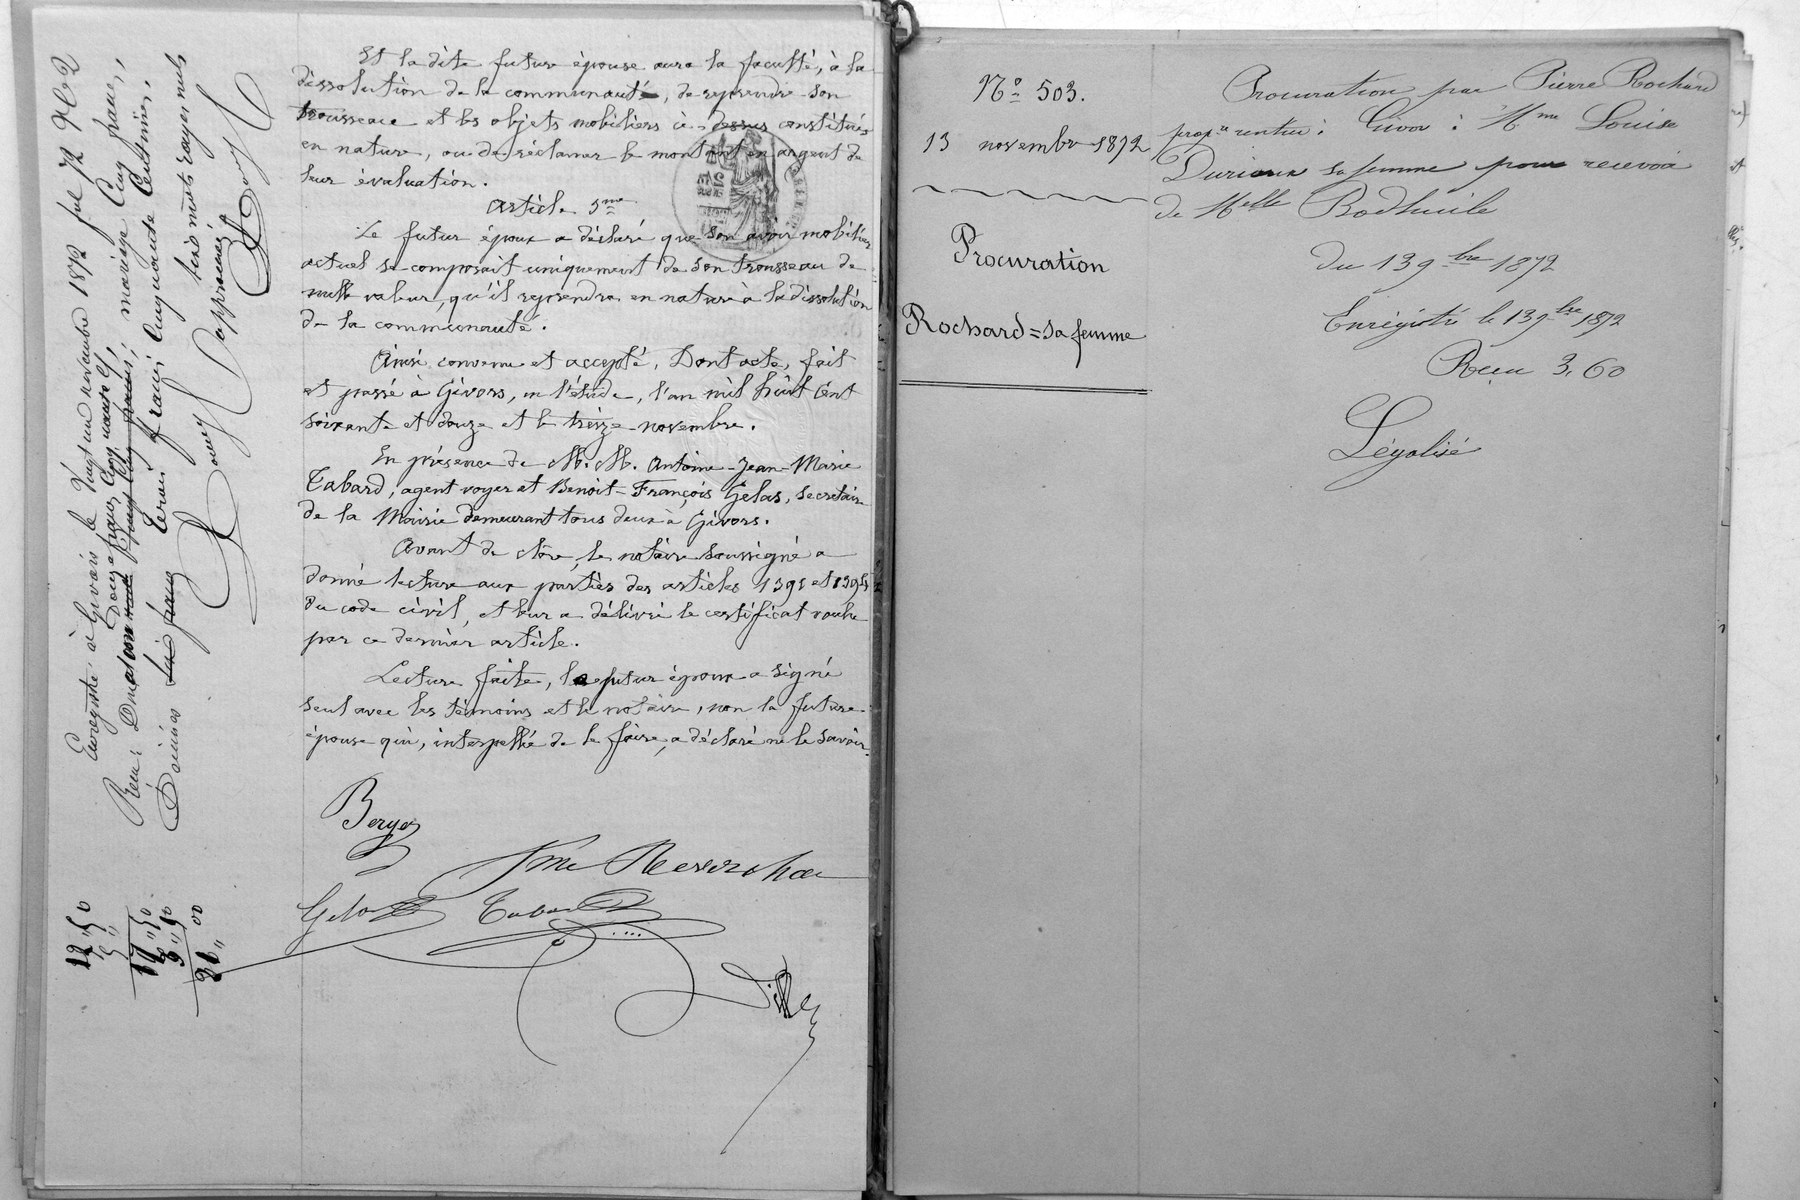 Et la dite future épouse aura la faculté, à la
dissolution de la communauté, de reprendre son
trousseau et les objets mobiliers ci-dessus constitués
en nature, ou de réclamer le montant en argent de
leur évaluation.
Article 5me
Le futur époux a déclaré que son avoir mobilier
actuel se composait uniquement de son trousseau de
nulle valeur, qu'il reprendra en nature à la dissolution
de la communauté.
Ainsi convenu et accepté, Dont acte, fait
et passé à Givors, en l'étude, l'an mil huit Cent
soixante et douze et le treize novembre.
En présence de M. M. Antoine-Jean-Marie
Tabard, agent voyer et Benoit-François Gelas, secrétaire
de la Mairie demeurant tous deux à Givors.
Avant de clôre, le notaire soussigné a
donné lecture aux parties des articles 1391 et 1394
du code civil, et leur a délivré le certificat voulu
par ce dernier article.
Lecture faite, le futur époux a signé
seul avec les témoins et le notaire, non la future
épouse qui, interpellée de le faire, a déclaré ne le savoir.
Enregistré à Givors le Vingt un novembre 1872
Reçu: mariage Cinq francs,
Décimes
trois mots rayés nuls
approuvés
12 " 50
5 "
17 " 50
3 " 50
21 " 00
Gelas Tabard
No 503.
13 novembre 1872
Procuration
Rochard = sa femme
Procuration par Pierre Rochard
propre rentier à Givors à Mme Louise
sa femme pour recevoir
de Melle
du 13 9bre 1872
Enregistré le 13 9bre 1872
Reçu 3,60
Légalisé